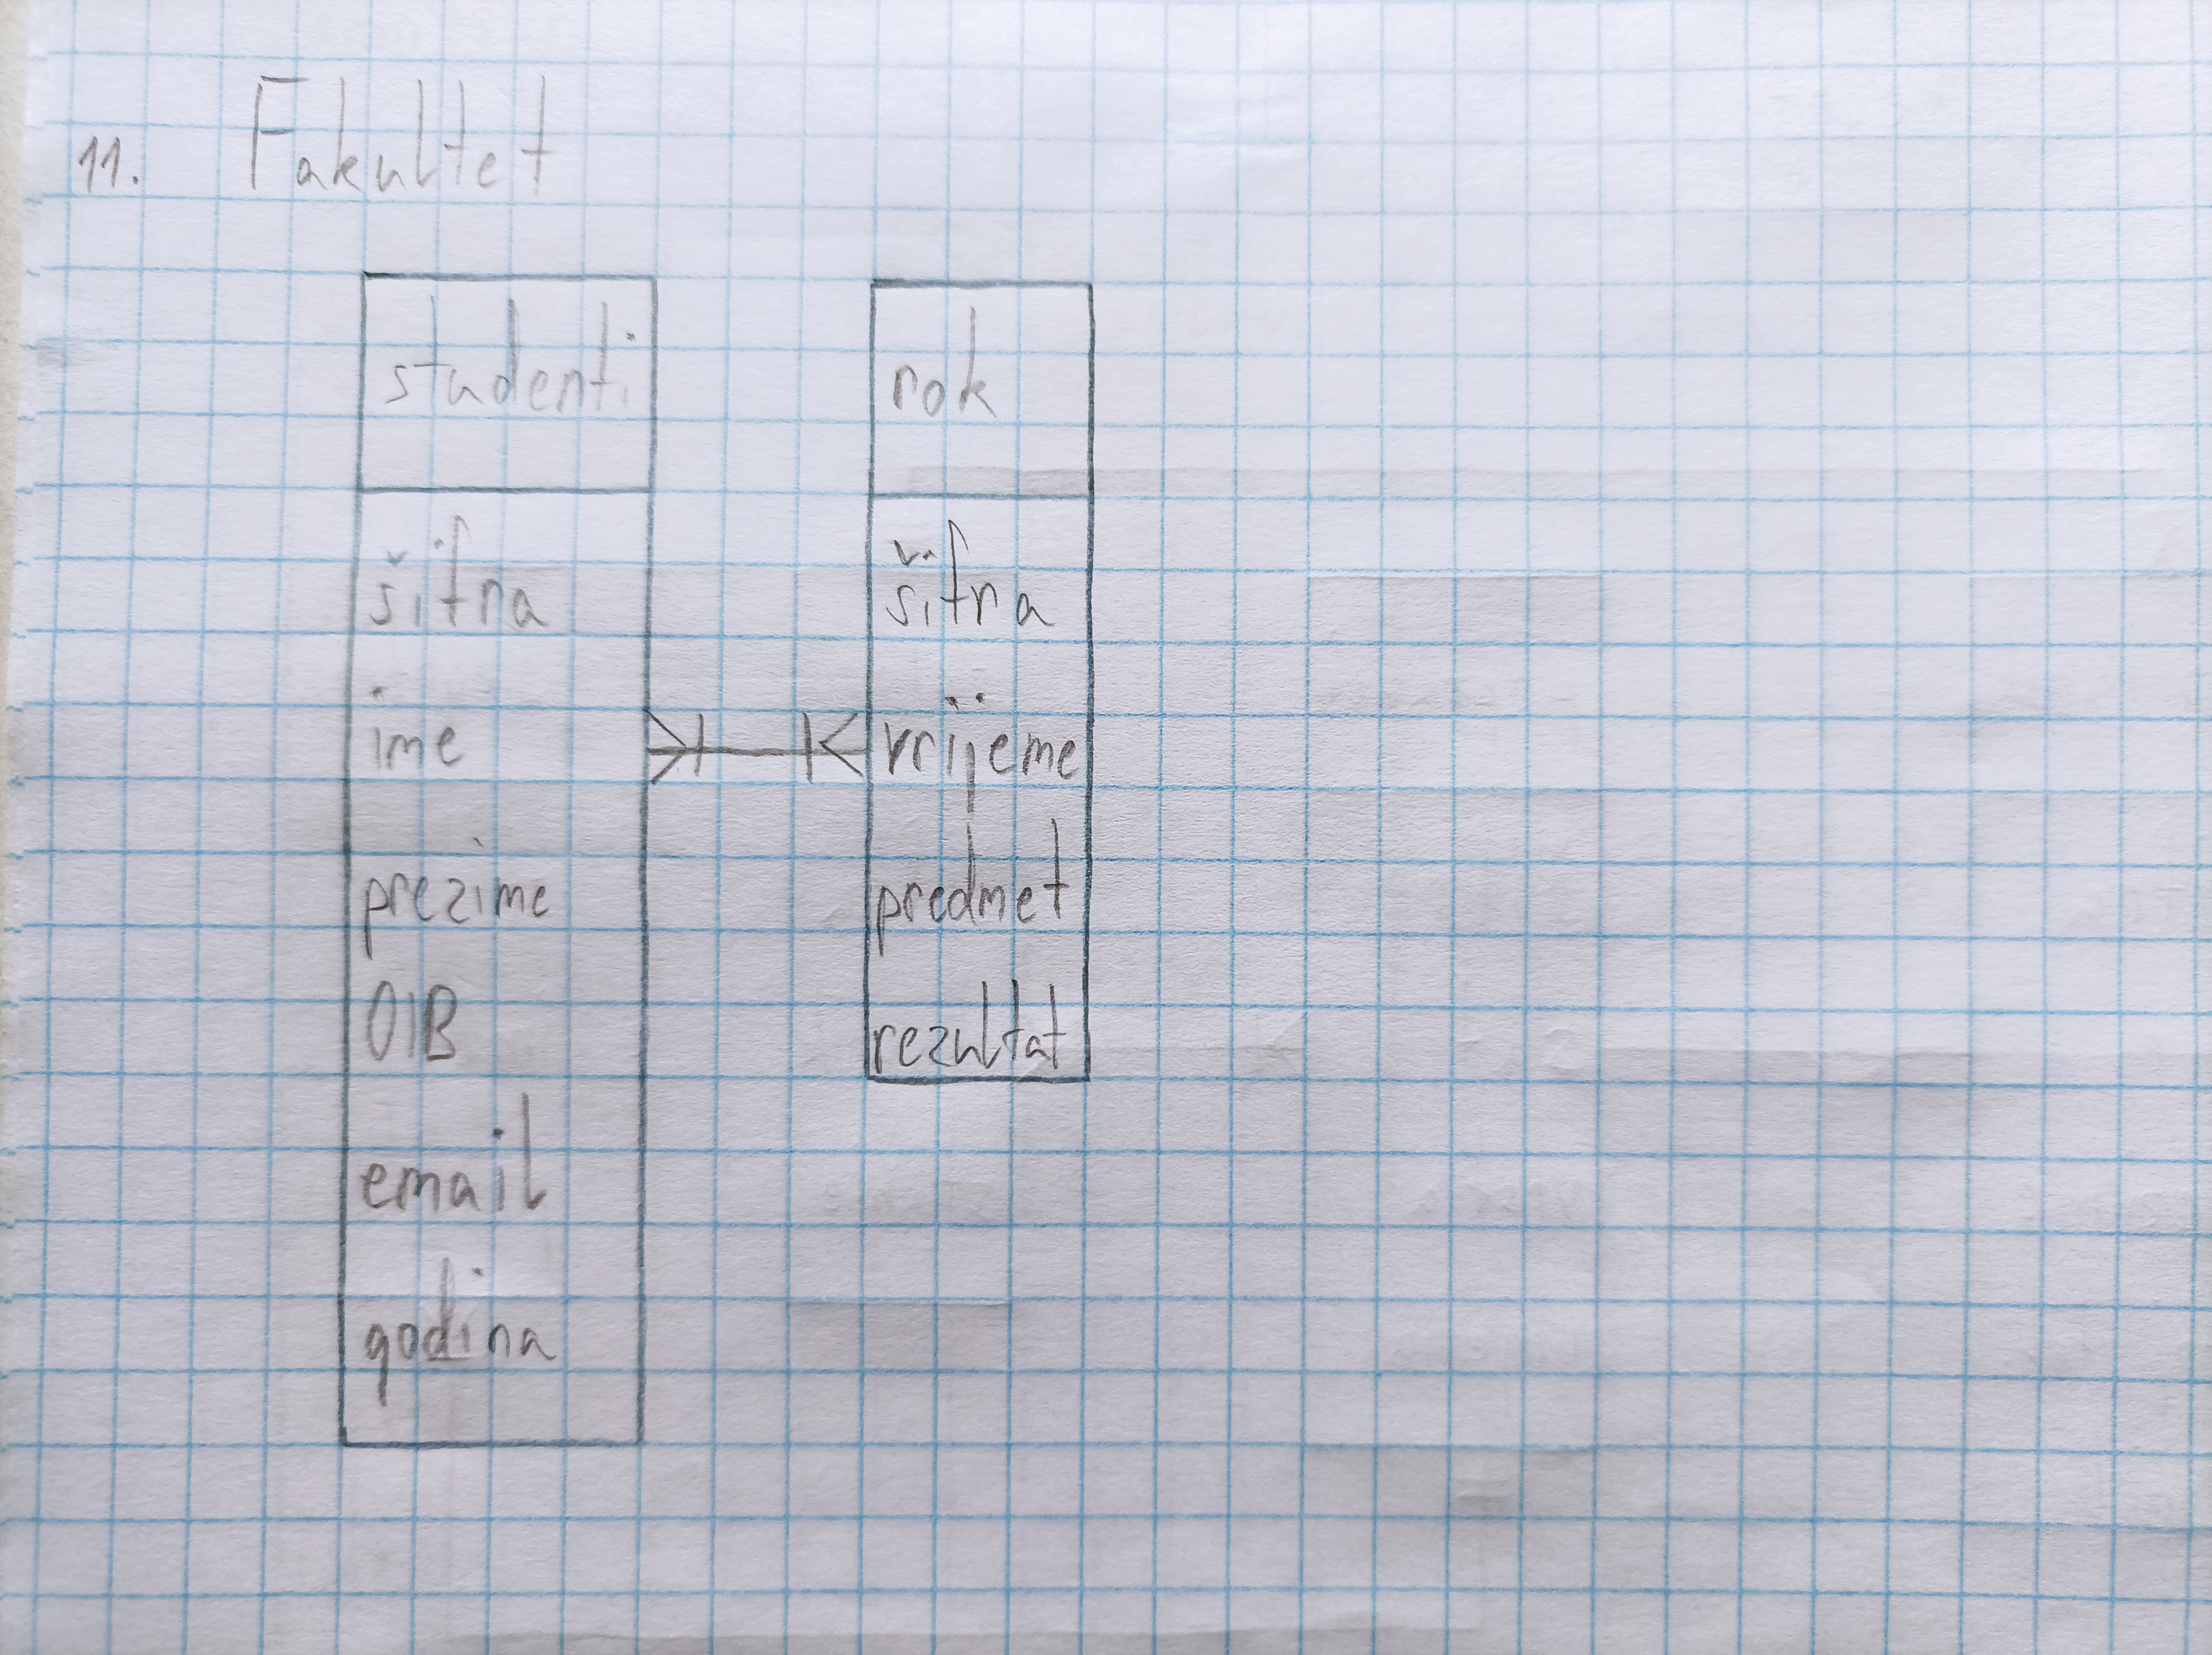 11. Fakultet
studenti
šifra
ime
prezime
OIB
email
godina
rok
šifra
vrijeme
predmet
rezultat